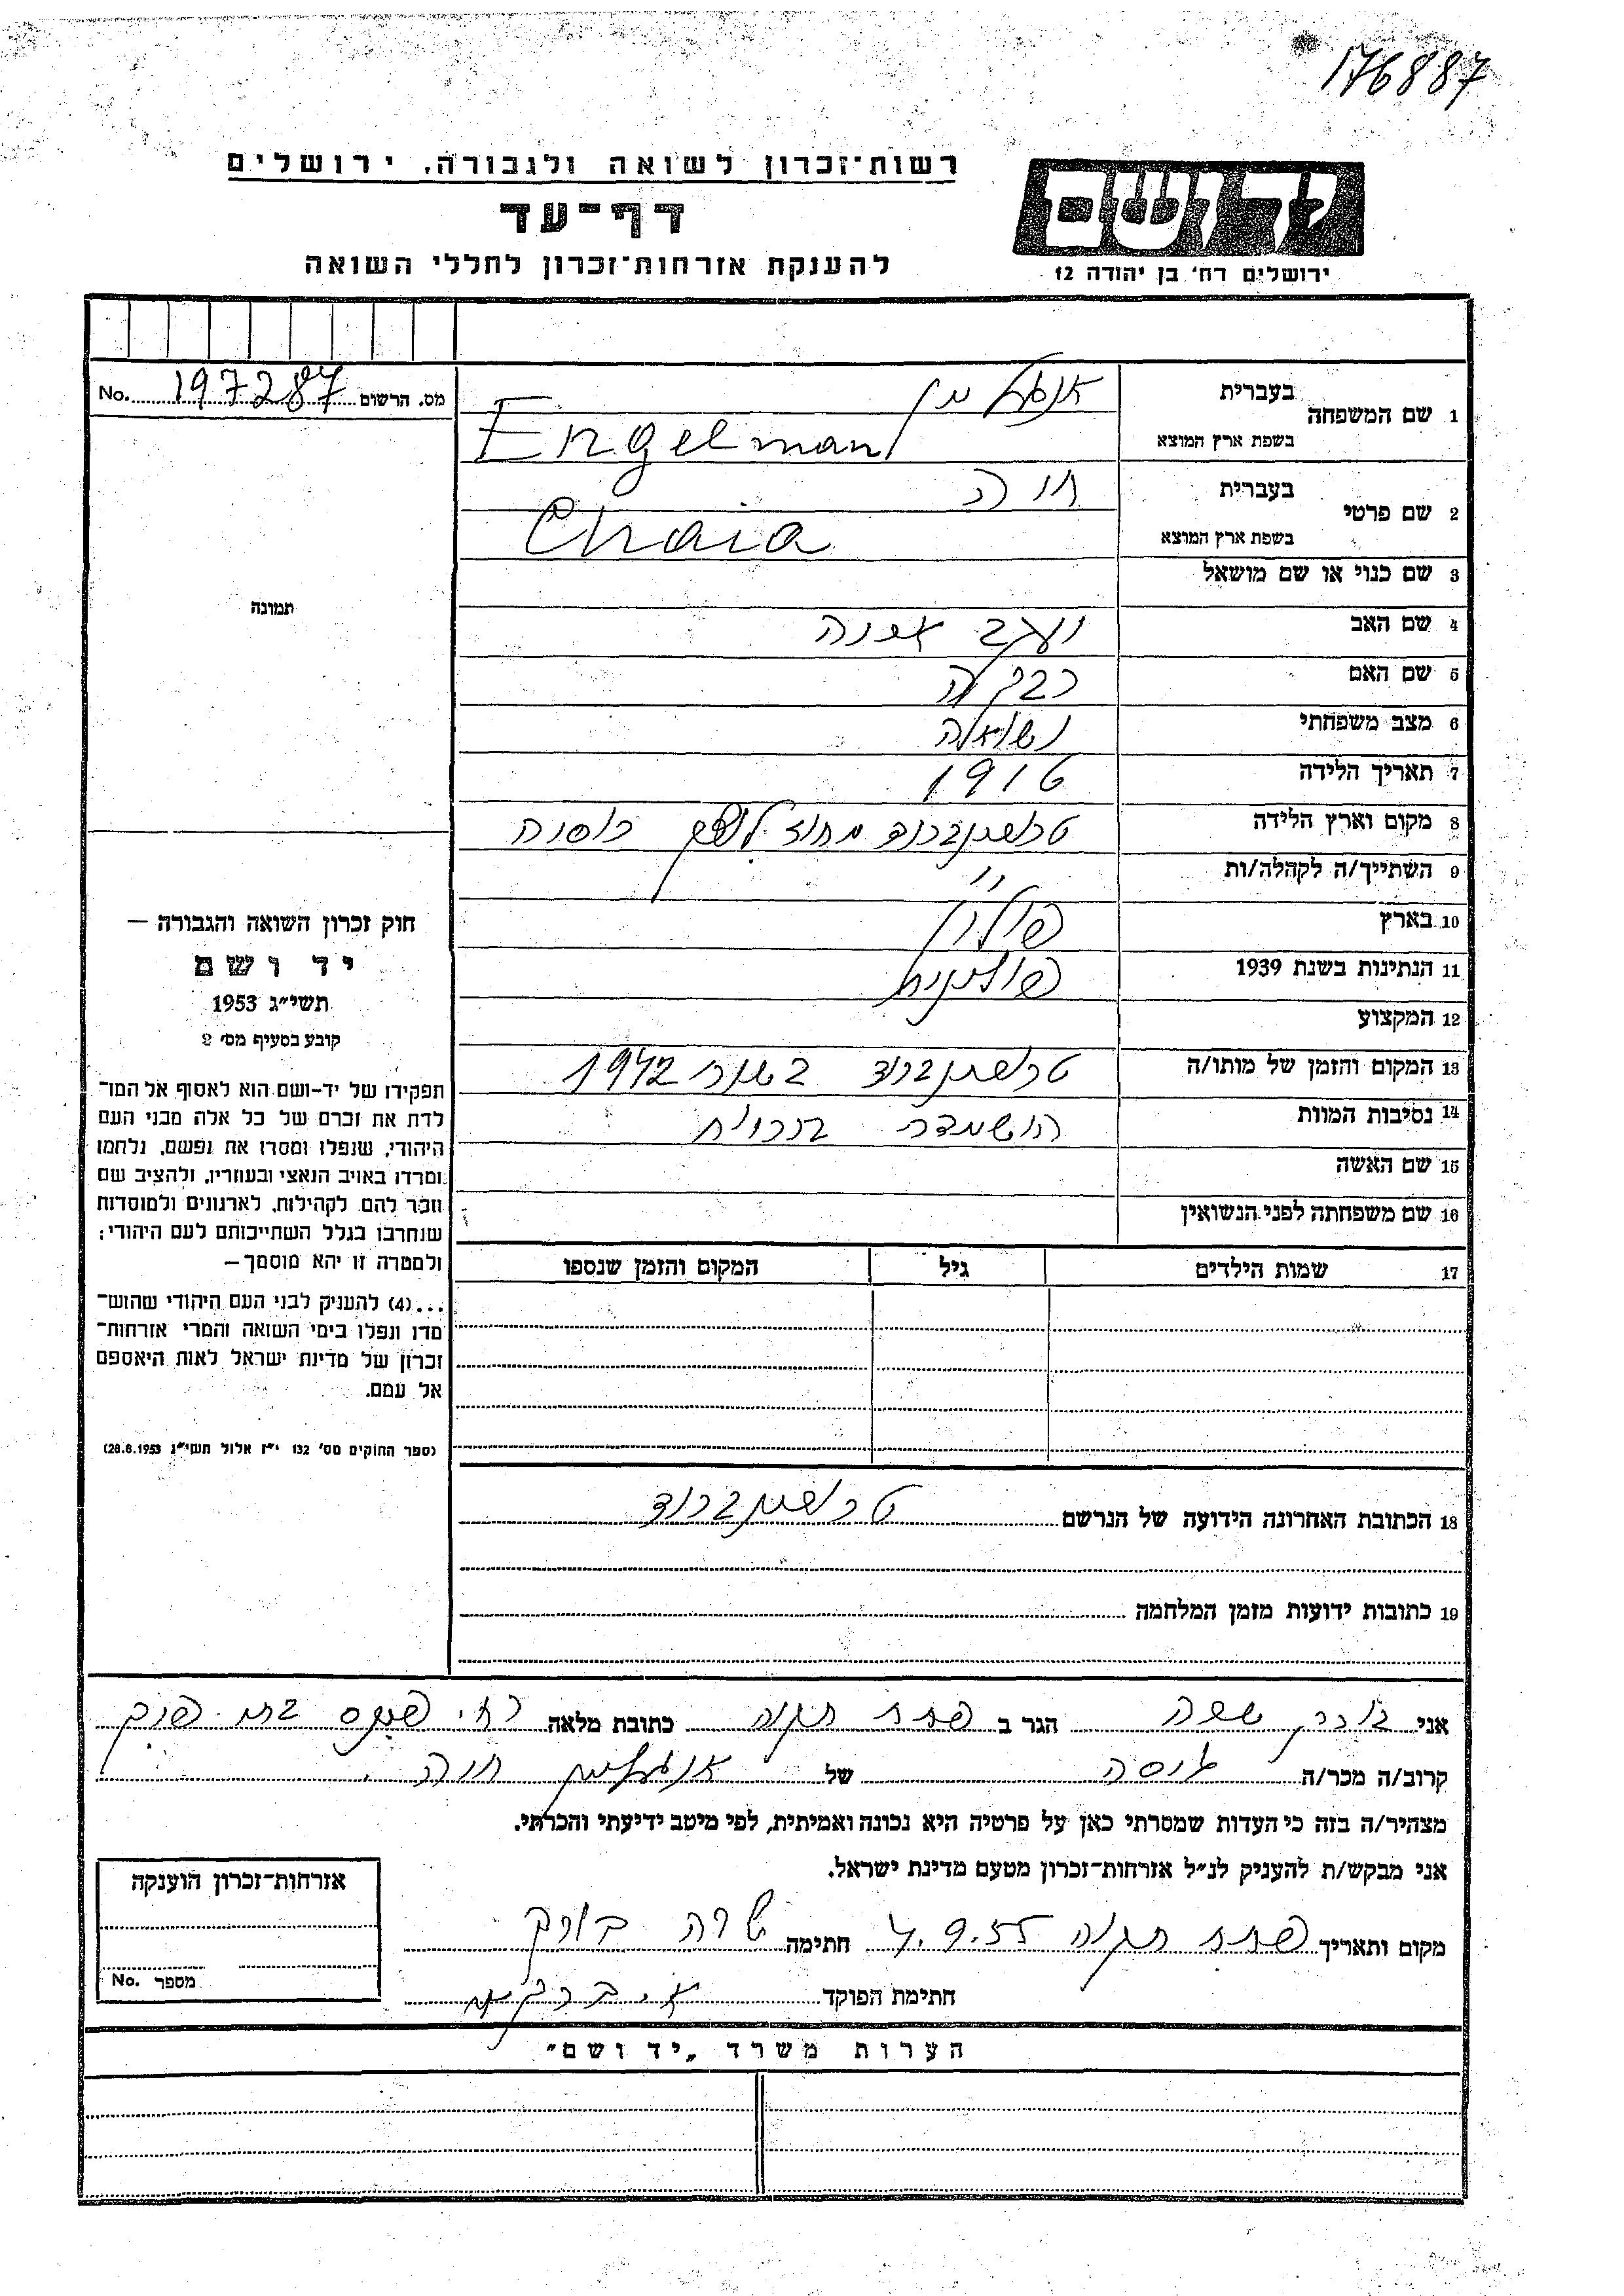 176887
רשות־זכרון לשואה ולגבורה, ירושלים
דף־עד
להענקת אזרחות־זכרון לחללי השואה
ירושלים רח' בן יהודה 12
מס. הרשום 197287 No.
1 שם המשפחה
בעברית אנגלמן
בשפת ארץ המוצא Engelman
2 שם פרטי
בעברית חיה
בשפת ארץ המוצא Chaia
3 שם כנוי או שם מושאל
4 שם האב יעקב
5 שם האם רבקה
6 מצב משפחתי נשואה
7 תאריך הלידה 1916
8 מקום וארץ הלידה טרושנברוד מחוז לוצק
9 השתייך/ה לקהלה/ות
10 בארץ פולין
11 הנתינות בשנת 1939 פולנית
12 המקצוע
13 המקום והזמן של מותו/ה טרושנברוד בשנת 1942
14 נסיבות המוות הושמדה
15 שם האשה
16 שם משפחתה לפני הנשואין
17 שמות הילדים גיל המקום והזמן שנספו
תמונה
חוק זכרון השואה והגבורה —
יד ושם
תשי״ג 1953
קובע בסעיף מס׳ 2
תפקידו של יד-ושם הוא לאסוף אל המו־
לדת את זכרם של כל אלה מבני העם
היהודי, שנפלו ומסרו את נפשם, נלחמו
ומרדו באויב הנאצי ובעוזריו, ולהציב שם
וזכר להם לקהילות, לארגונים ולמוסדות
שנחרבו בגלל השתייכותם לעם היהודי;
ולמטרה זו יהא מוסמך —
...(4) להעניק לבני העם היהודי שהוש־
מדו ונפלו בימי השואה והמרי אזרחות־
זכרון של מדינת ישראל לאות היאספם
אל עמם.
(ספר החוקים מס׳ 132 י״ז אלול תשי״ג 28.8.1953)
18 הכתובת האחרונה הידועה של הנרשם טרושנברוד
19 כתובות ידועות מזמן המלחמה
אני בורק שרה הגר ב פתח תקוה כתובת מלאה
קרוב/ה מכר/ה גיסה של אנגלמן חיה
מצהיר/ה בזה כי העדות שמסרתי כאן על פרטיה היא נכונה ואמיתית, לפי מיטב ידיעתי והכרתי.
אני מבקש/ת להעניק לנ״ל אזרחות־זכרון מטעם מדינת ישראל.
מקום ותאריך פתח תקוה 4.9.55 חתימה שרה בורק
חתימת הפוקד
אזרחות־זכרון הוענקה
מספר No.
הערות משרד „יד ושם״